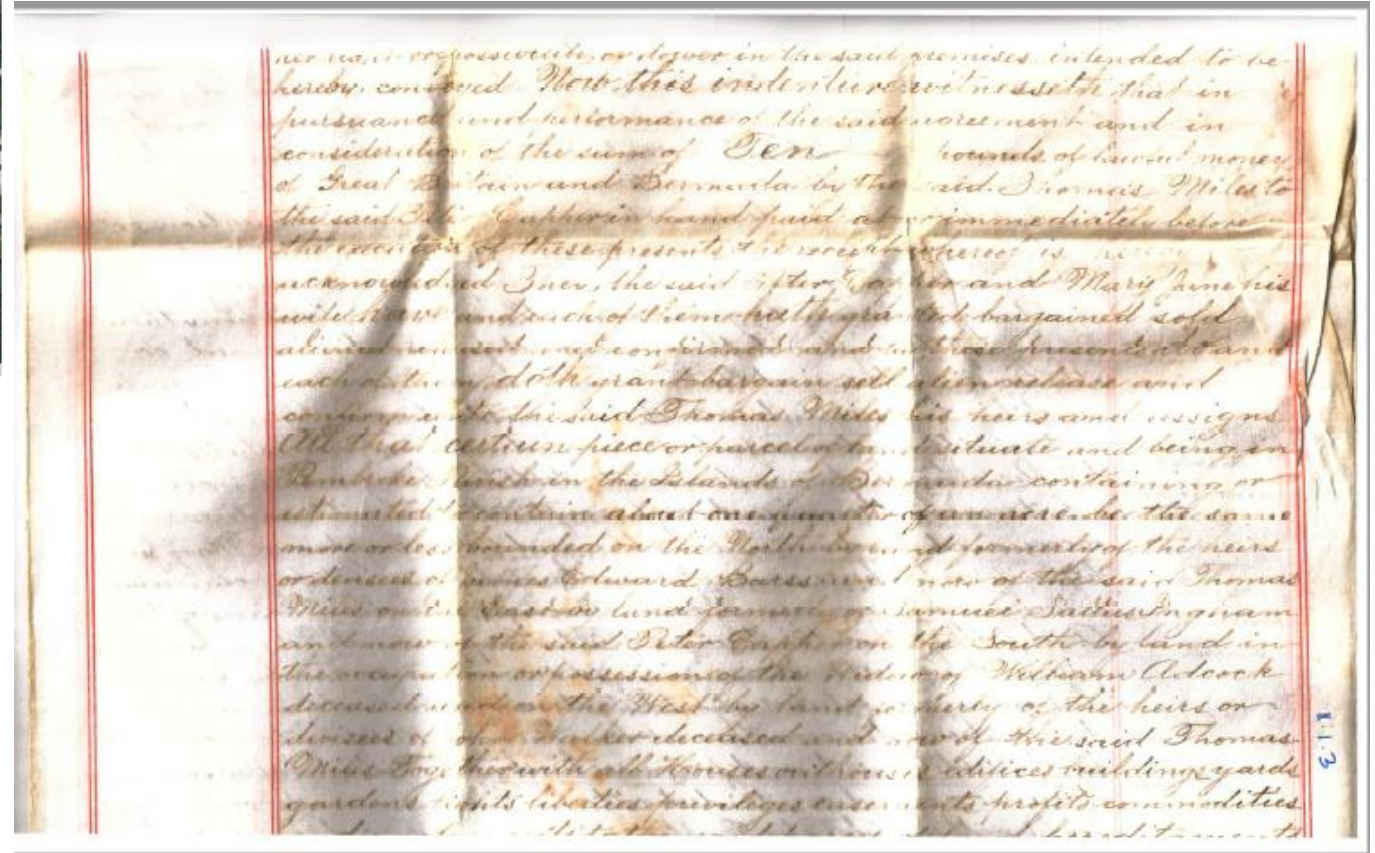 or dower in the said premises intended to be
hereby conveyed Now this indenture witnesseth that in
pursuance and performance of the said agreement and in
consideration of the sum of Ten pounds of lawful money
of Great Britain and Bermuda by the said Thomas Miles to
the said in hand paid at or immediately before
the execution of these presents the receipt whereof is
acknowledged the said and Mary Jane his
wife have and each of them hath granted bargained sold
and confirmed and by these presents do and
each of them doth grant bargain sell alien release and
confirm unto the said Thomas Miles his heirs and assigns
All that certain piece or parcel of land situate and being in
Pembroke Parish in the Islands of Bermuda containing or
estimated to contain about one quarter of an acre be the same
more or less bounded on the North by land formerly of the heirs
or devisees of James Edward Barss and now of the said Thomas
Miles on the East by land formerly of Samuel Saltus Ingham
and now of the said Peter on the South by land in
the occupation or possession of the Widow of William Adcock
deceased and on the West by land formerly of the heirs or
devisees of deceased and now of the said Thomas
Miles Together with all Houses outhouses edifices buildings yards
gardens rights liberties privileges easements profits commodities
hereditaments
1.1.3